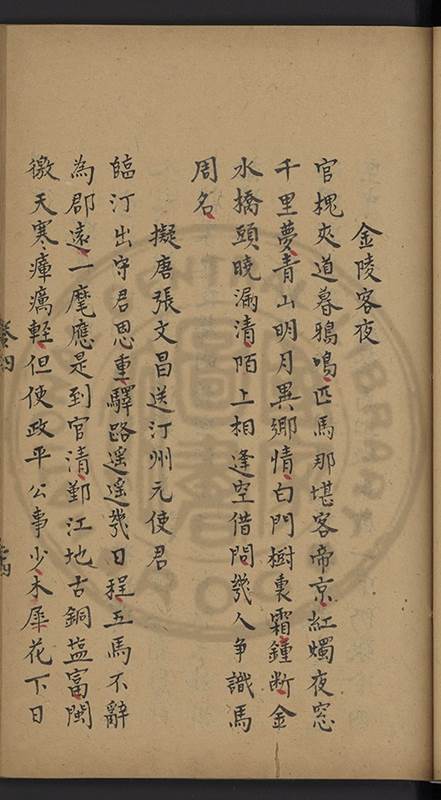 金陵客夜
官槐夾道暮鴉鳴匹馬那堪客帝京紅燭夜窓
千里夢青山明月異鄉情白門樹裏霜鐘断金
水橋頭曉漏清陌上相逢空借問幾人爭識馬
周名
擬唐張文昌送汀州元使君
臨汀出守君恩重驛路遥遥幾日程五馬不辭
為郡遠一麾應是到官清鄞江地古銅塩富閩
徼天寒瘴癘輕但使政平公事少木犀花下日